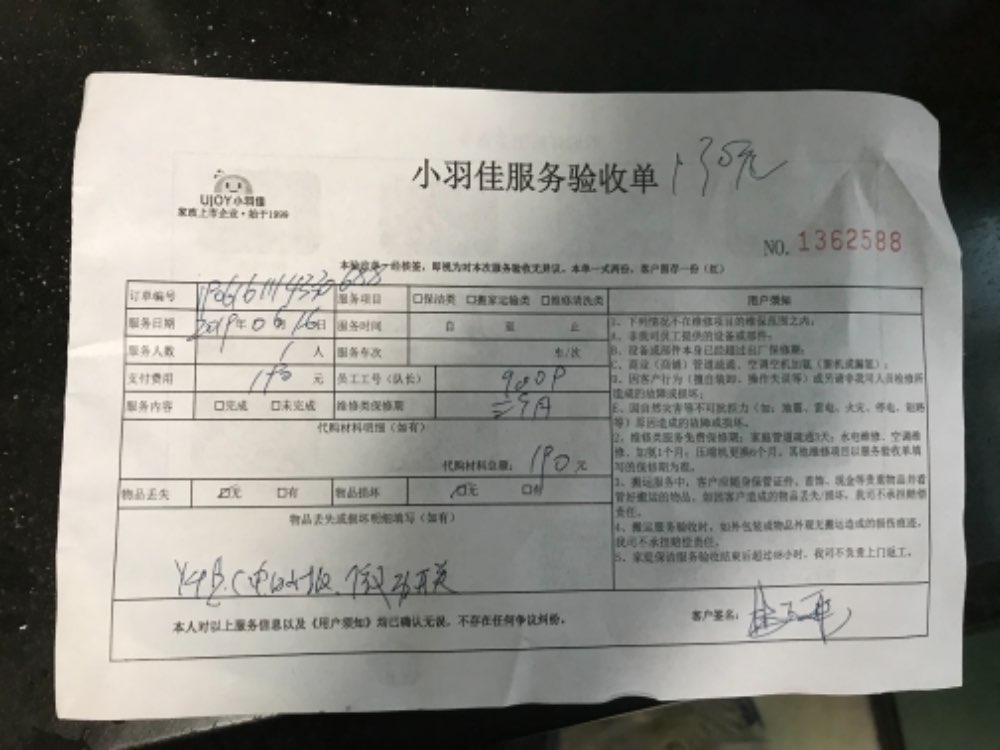 小羽佳服务验收单 130元
UJOY小羽佳
家政上市企业·始于1999
NO. 1362588
本验收单一经接签，即视为对本次服务验收无异议。本单一式两份，客户留存一份（红）
订单编号 服务项目 □保洁类 □搬家运输类 □维修清洗类 用户须知
服务日期 2019年06月16日 服务时间 自 至 止
服务人数 1人 服务车次 车/次
支付费用 元 员工工号（队长）
服务内容 □完成 □未完成 维修类保修期 三个月
代购材料明细（如有）
代购材料总额： 190元
物品丢失 ☑无 □有 物品损坏 ☑无 □有
物品丢失或损坏明细填写（如有）
1、下列情况不在维修项目的维保范围之内：
A、非我司员工提供的设备或部件；
B、设备或部件本身已经超过出厂保修期；
C、商业（商铺）管道疏通、空调空机加氟（新机或漏氟）；
D、因客户行为（擅自装卸、操作失误等）或另请非我司人员检修所
造成的故障或损坏；
E、因自然灾害等不可抗拒力（如：地震、雷电、火灾、停电、短路
等）原因造成的故障或损坏。
2、维修类服务免费保修期：家庭管道疏通3天；水电维修、空调维
修、加氟1个月；压缩机更换6个月。其他维修项目以服务验收单填
写的保修期为准。
3、搬运服务中，客户应随身保管证件、首饰、现金等贵重物品并看
管好搬运的物品。如因客户造成的物品丢失/损坏，我司不承担赔偿
责任。
4、搬运服务验收时，如外包装或物品外观无搬运造成的损伤痕迹，
我司不承担赔偿责任。
5、家庭保洁服务验收结束后超过48小时，我司不负责上门返工。
本人对以上服务信息以及《用户须知》均已确认无误，不存在任何争议纠纷。
客户签名：